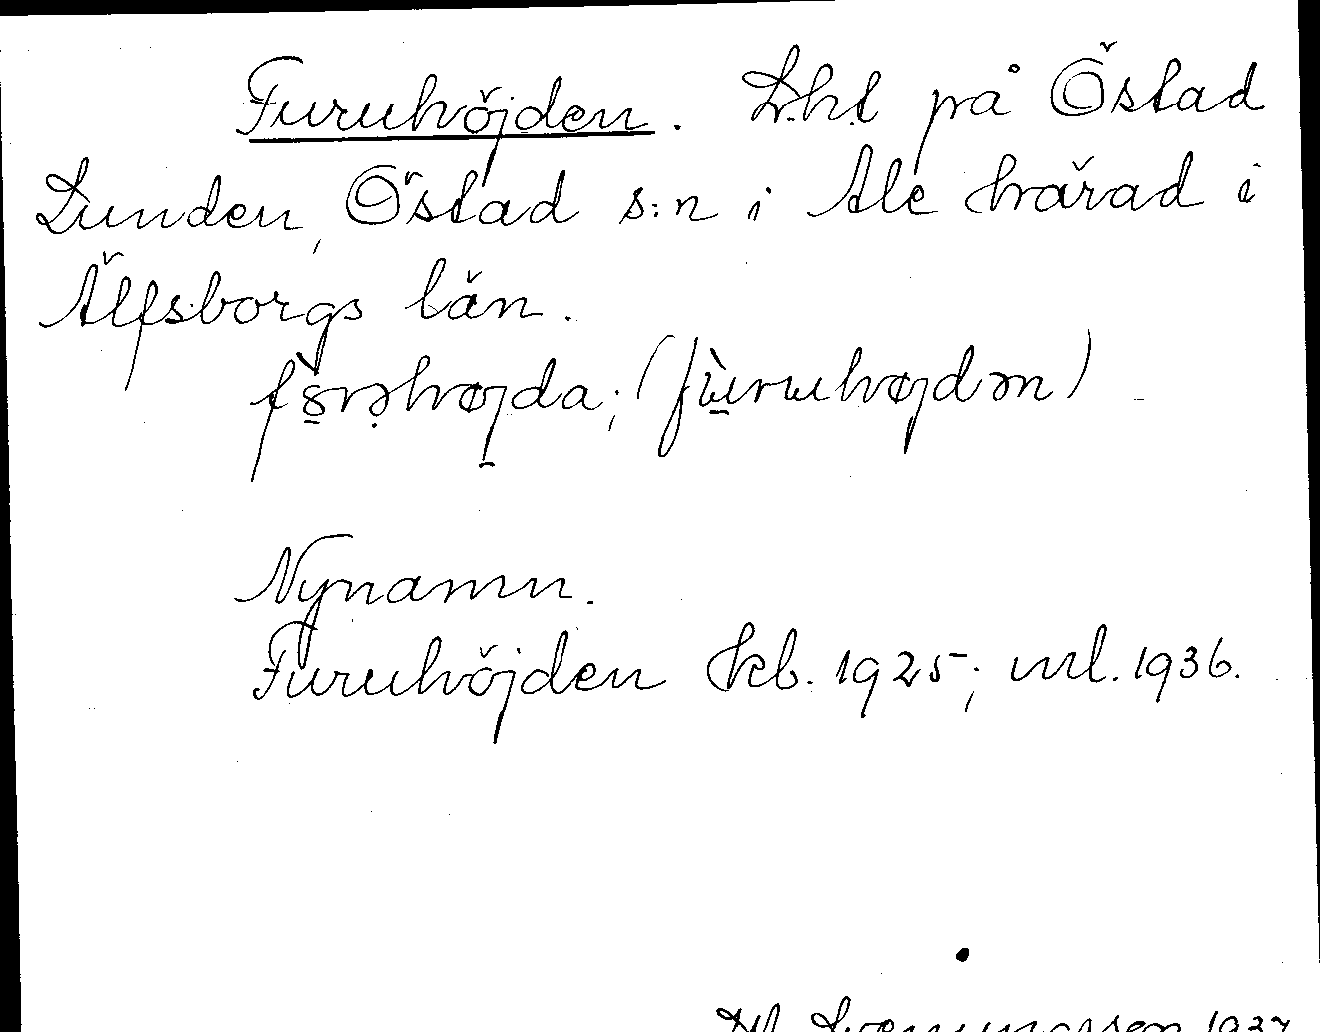 Furuhöjden. Lht på Östad
Lunden, Östad s:n i Ale härad i
Älfsborgs län.
(fùruhøjdən)
Nynamn.
Furuhöjden kb. 1925; ml. 1936.
1937